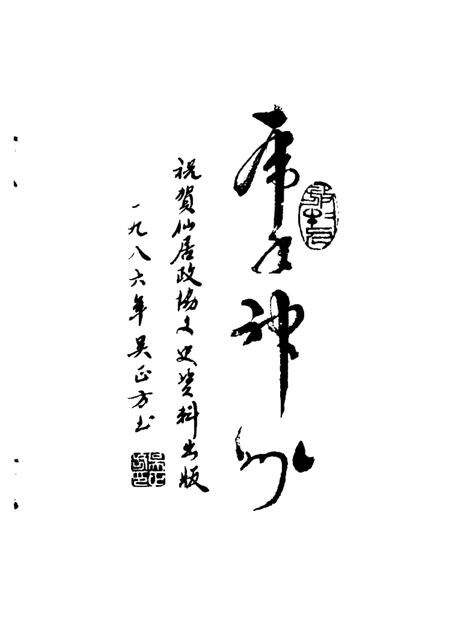 虎年神州
祝賀仙居政協文史资料出版
一九八六年吴正方书